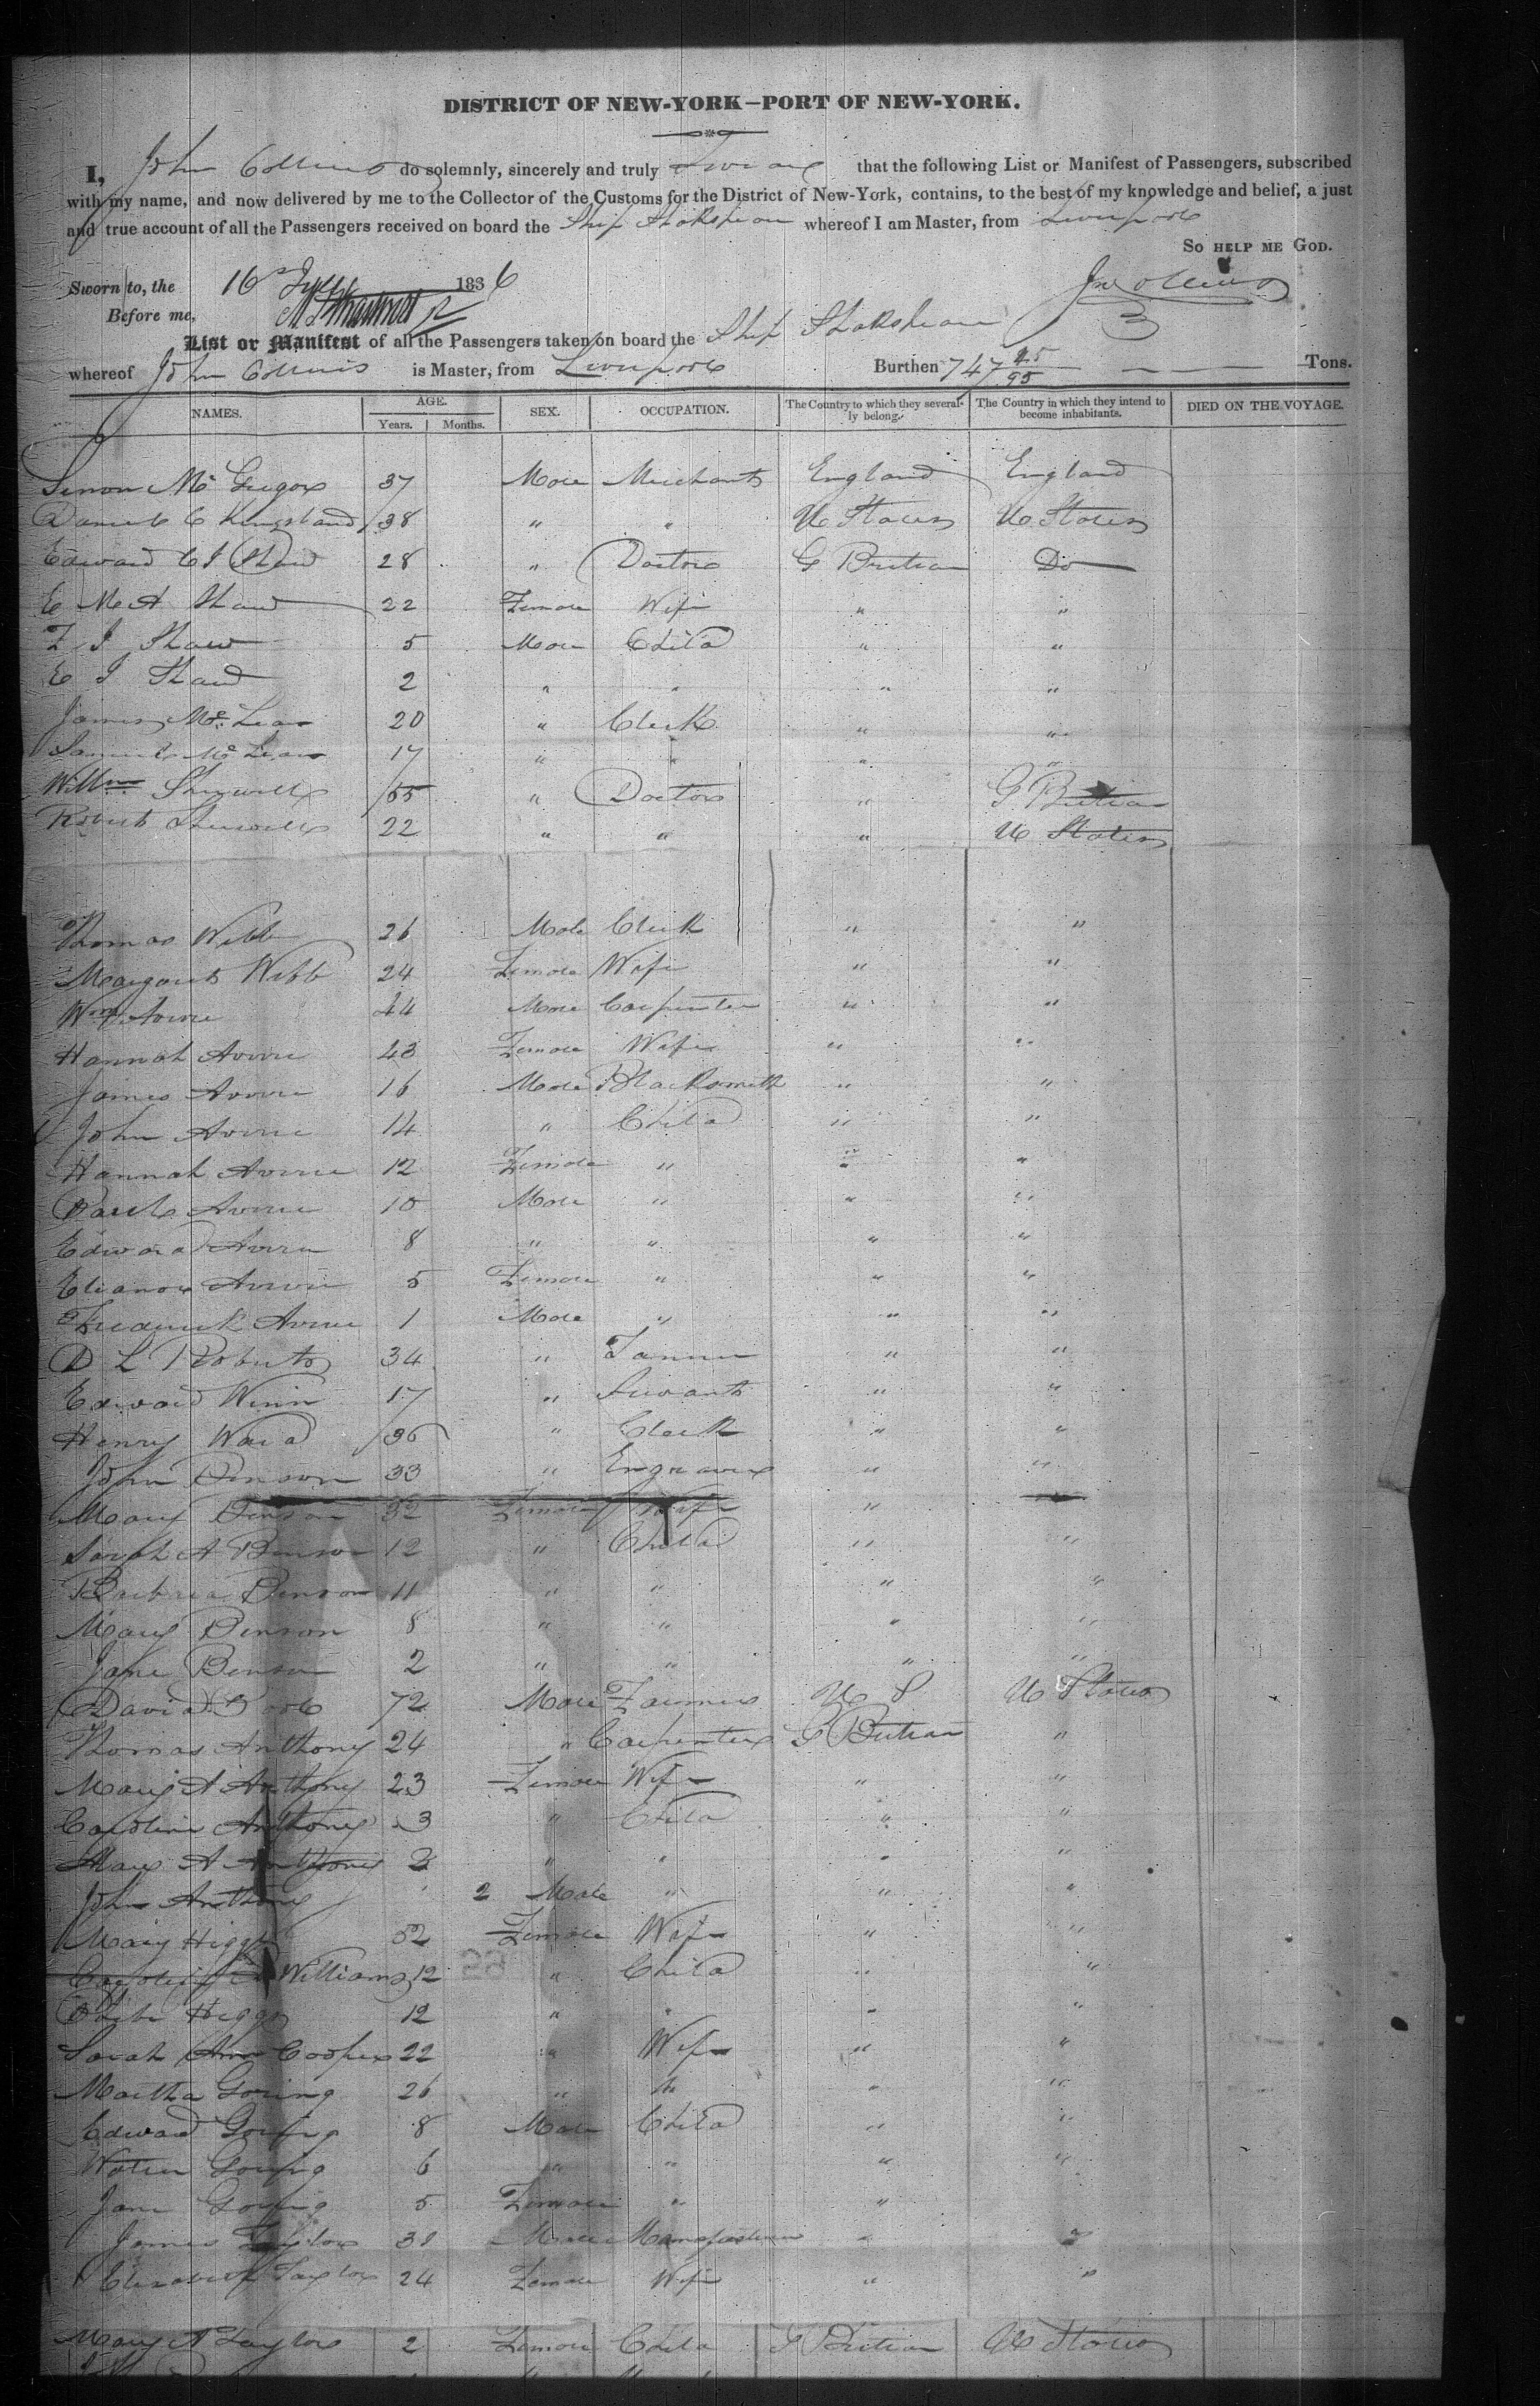 DISTRICT OF NEW-YORK—PORT OF NEW-YORK.
I, John Collins do solemnly, sincerely and truly Swear that the following List or Manifest of Passengers, subscribed
with my name, and now delivered by me to the Collector of the Customs for the District of New-York, contains, to the best of my knowledge and belief, a just
and true account of all the Passengers received on board the Ship Shakspeare whereof I am Master, from Liverpool
So HELP ME GOD.
Sworn to, the 16 1836 Jno Collins
Before me,
List or Manifest of all the Passengers taken on board the Ship Shakspeare
whereof John Collins is Master, from Liverpool Burthen 747 Tons.
NAMES. AGE. Years. Months. SEX. OCCUPATION. The Country to which they severally belong. The Country in which they intend to become inhabitants. DIED ON THE VOYAGE.
Simon McGregor 37 Male Merchant England England
Daniel C Kingsland 38 " " U States U States
Edward C J Shaw 28 " Doctor G Britian Do
E M A Shaw 22 Female Wife " "
F J Shaw 5 Male Child " "
E J Shaw 2 " " " "
James McLean 20 " Clerk " "
Samuel McLean 17 " " " "
Willm 55 " Doctor " G Britian
Robert 22 " " " U States
Thomas Webb 26 Male Clerk " "
Margaret Webb 24 Female Wife " "
Wm 44 Male Carpenter " "
Hannah 43 Female Wife " "
James 16 Male Blacksmith " "
John 14 " Child " "
Hannah 12 Female " " "
10 Male " " "
Edward 8 " " " "
Eleanor 5 Female " " "
Frederick 1 Male " " "
D L Roberts 34 " " "
Edward Winn 17 " Servant " "
Henry Ward 36 " Clerk " "
John Benson 33 " Engraver " "
Mary Benson 32 Female Wife "
Sarah A Benson 12 " Child " "
Benson 11 " " " "
Mary Benson 8 " " " "
Jane Benson 2 " " " "
David 72 Male Farmer U S U States
Thomas Anthony 24 " Carpenter G Britian "
Mary A Anthony 23 Female Wife " "
Caroline Anthony 3 " Child " "
Mary A Anthony 2 " " " "
John Anthony 2 Male " " "
Mary Higgs 52 Female Wife " "
Williams 12 " Child " "
Higgs 12 " " " "
Sarah Ann Cooper 22 " Wife " "
Martha Goring 26 " " " "
Edward Goring 8 Male Child " "
Goring 6 " " " "
Jane Goring 5 Female " "
James Taylor 30 Male " "
Elizabeth Taylor 24 Female Wife " "
Mary A Taylor 2 Female Child G Britian U States